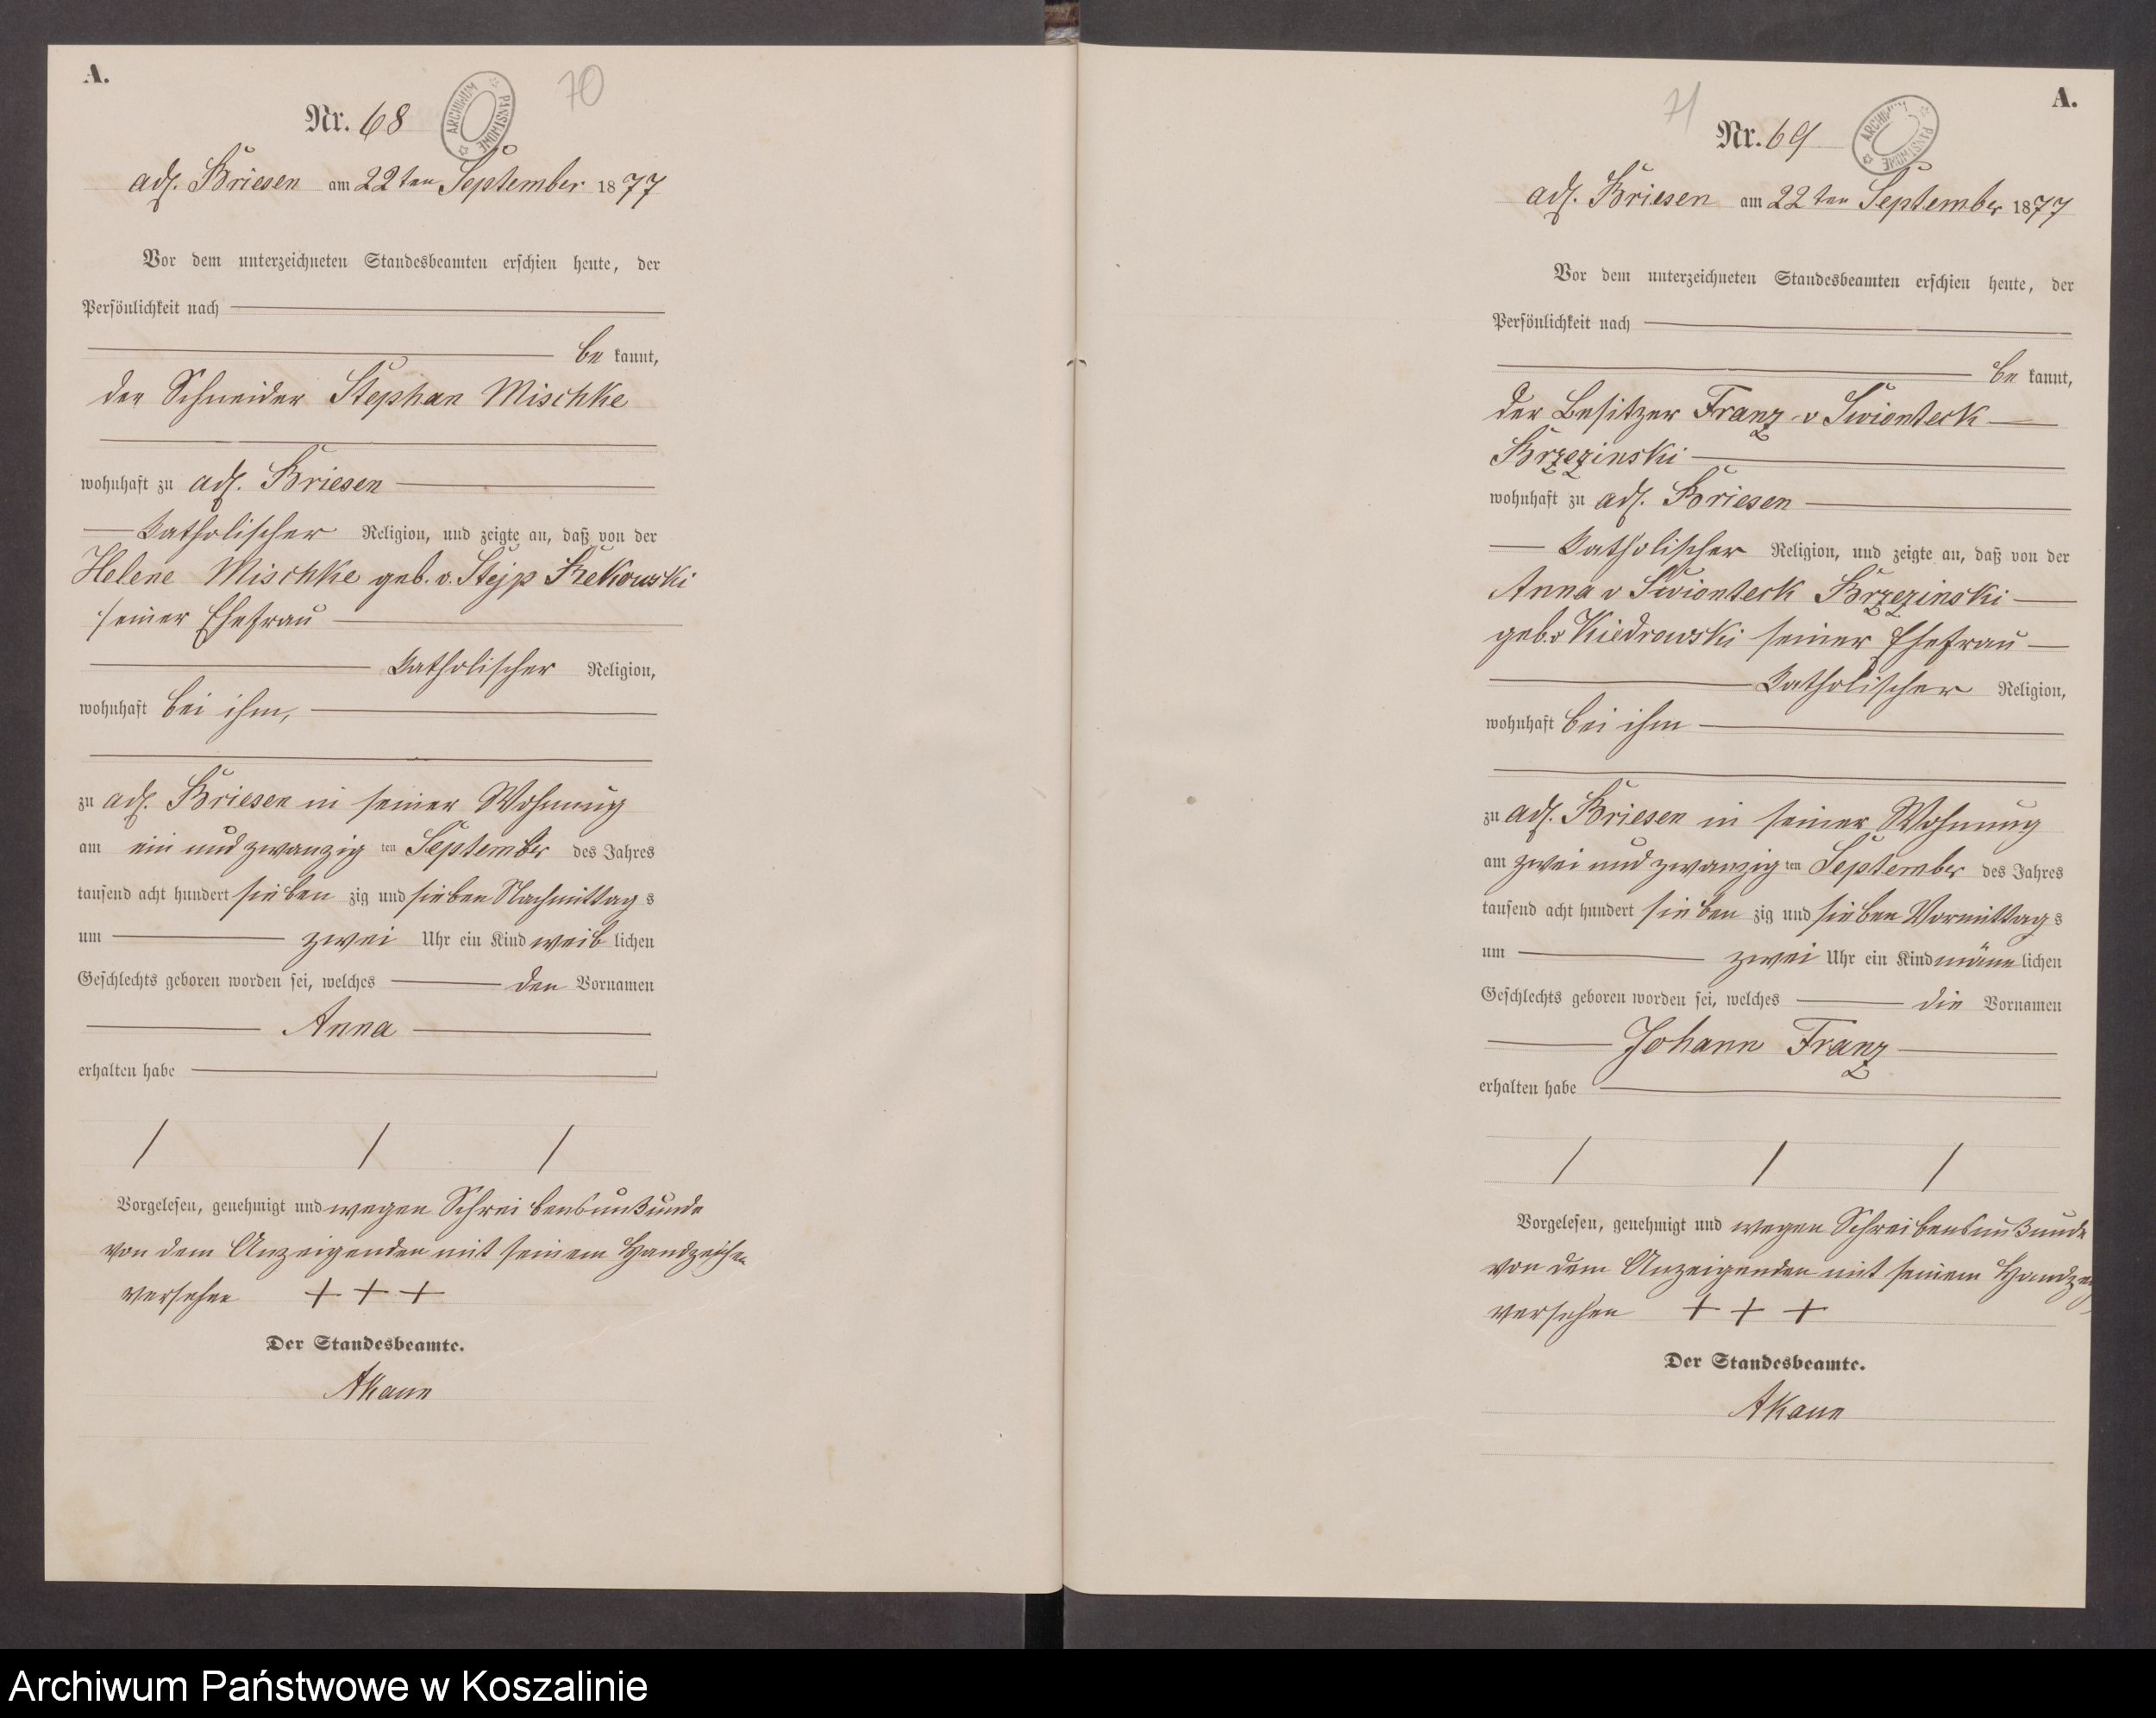 A.
70
Nr. 68
ARCHIWUM PAŃSTWOWE
adl. Briesen am 22ten September 1877
Vor dem unterzeichneten Standesbeamten erschien heute, der
Persönlichkeit nach
be kannt,
der Schneider Stephan Mischke
wohnhaft zu adl. Briesen
Katholischer Religion, und zeigte an, daß von der
Helene Mischke geb. v. Stejp Rekowski
seiner Ehefrau
Katholischer Religion,
wohnhaft bei ihm,
zu adl. Briesen in seiner Wohnung
am ein und zwanzig ten September des Jahres
tausend acht hundert sieben zig und sieben Nachmittag s
um zwei Uhr ein Kind weib lichen
Geschlechts geboren worden sei, welches den Vornamen
Anna
erhalten habe
Vorgelesen, genehmigt und wegen Schreibensunkunde
von dem Anzeigenden mit seinem Handzeichen
versehen + + +
Der Standesbeamte.
A.
71
Nr. 69
ARCHIWUM PAŃSTWOWE
adl. Briesen am 22ten September 1877
Vor dem unterzeichneten Standesbeamten erschien heute, der
Persönlichkeit nach
be kannt,
der Besitzer Franz v Swionteck
Brzezinski
wohnhaft zu adl. Briesen
Katholischer Religion, und zeigte an, daß von der
Anna v Swionteck Brzezinski
geb. v Kiedrowski seiner Ehefrau
Katholischer Religion,
wohnhaft bei ihm
zu adl. Briesen in seiner Wohnung
am zwei und zwanzig ten September des Jahres
tausend acht hundert sieben zig und sieben Vormittag s
um zwei Uhr ein Kind männ lichen
Geschlechts geboren worden sei, welches die Vornamen
Johann Franz
erhalten habe
Vorgelesen, genehmigt und wegen Schreibensunkunde
von dem Anzeigenden mit seinem
versehen + + +
Der Standesbeamte.
Archiwum Państwowe w Koszalinie